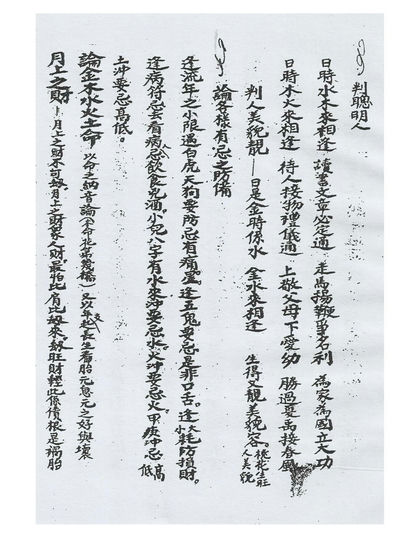 判聰明人
日時水木來相逢 讀書文章必定通 走馬揚鞭爭名利 為家為國立大功
日時木火來相逢 待人接物禮儀通 上敬父母下愛幼 勝過夏禹接春風
判人美貌靚——日是金時係水 金水來相逢 生得又靚美貌容。桃花生旺人美貌
論各樣有忌之防備
逢流年之小限遇白虎天狗要防忌有痛 逢五鬼要忌是非口舌。逢大小耗防損財。
逢病符忌去看病忌飲食允酒。小兒八字有水來沖要忌水。火沖要忌火。甲庚沖忌高低
土沖要忌高低。
論金木水火土命 以命之納音論 又以年 長生看胎元息元之好與壞
月上之財——月上之財不可 月上之財 人財。最怕比肩比 來 旺財輕此係債根是禍胎